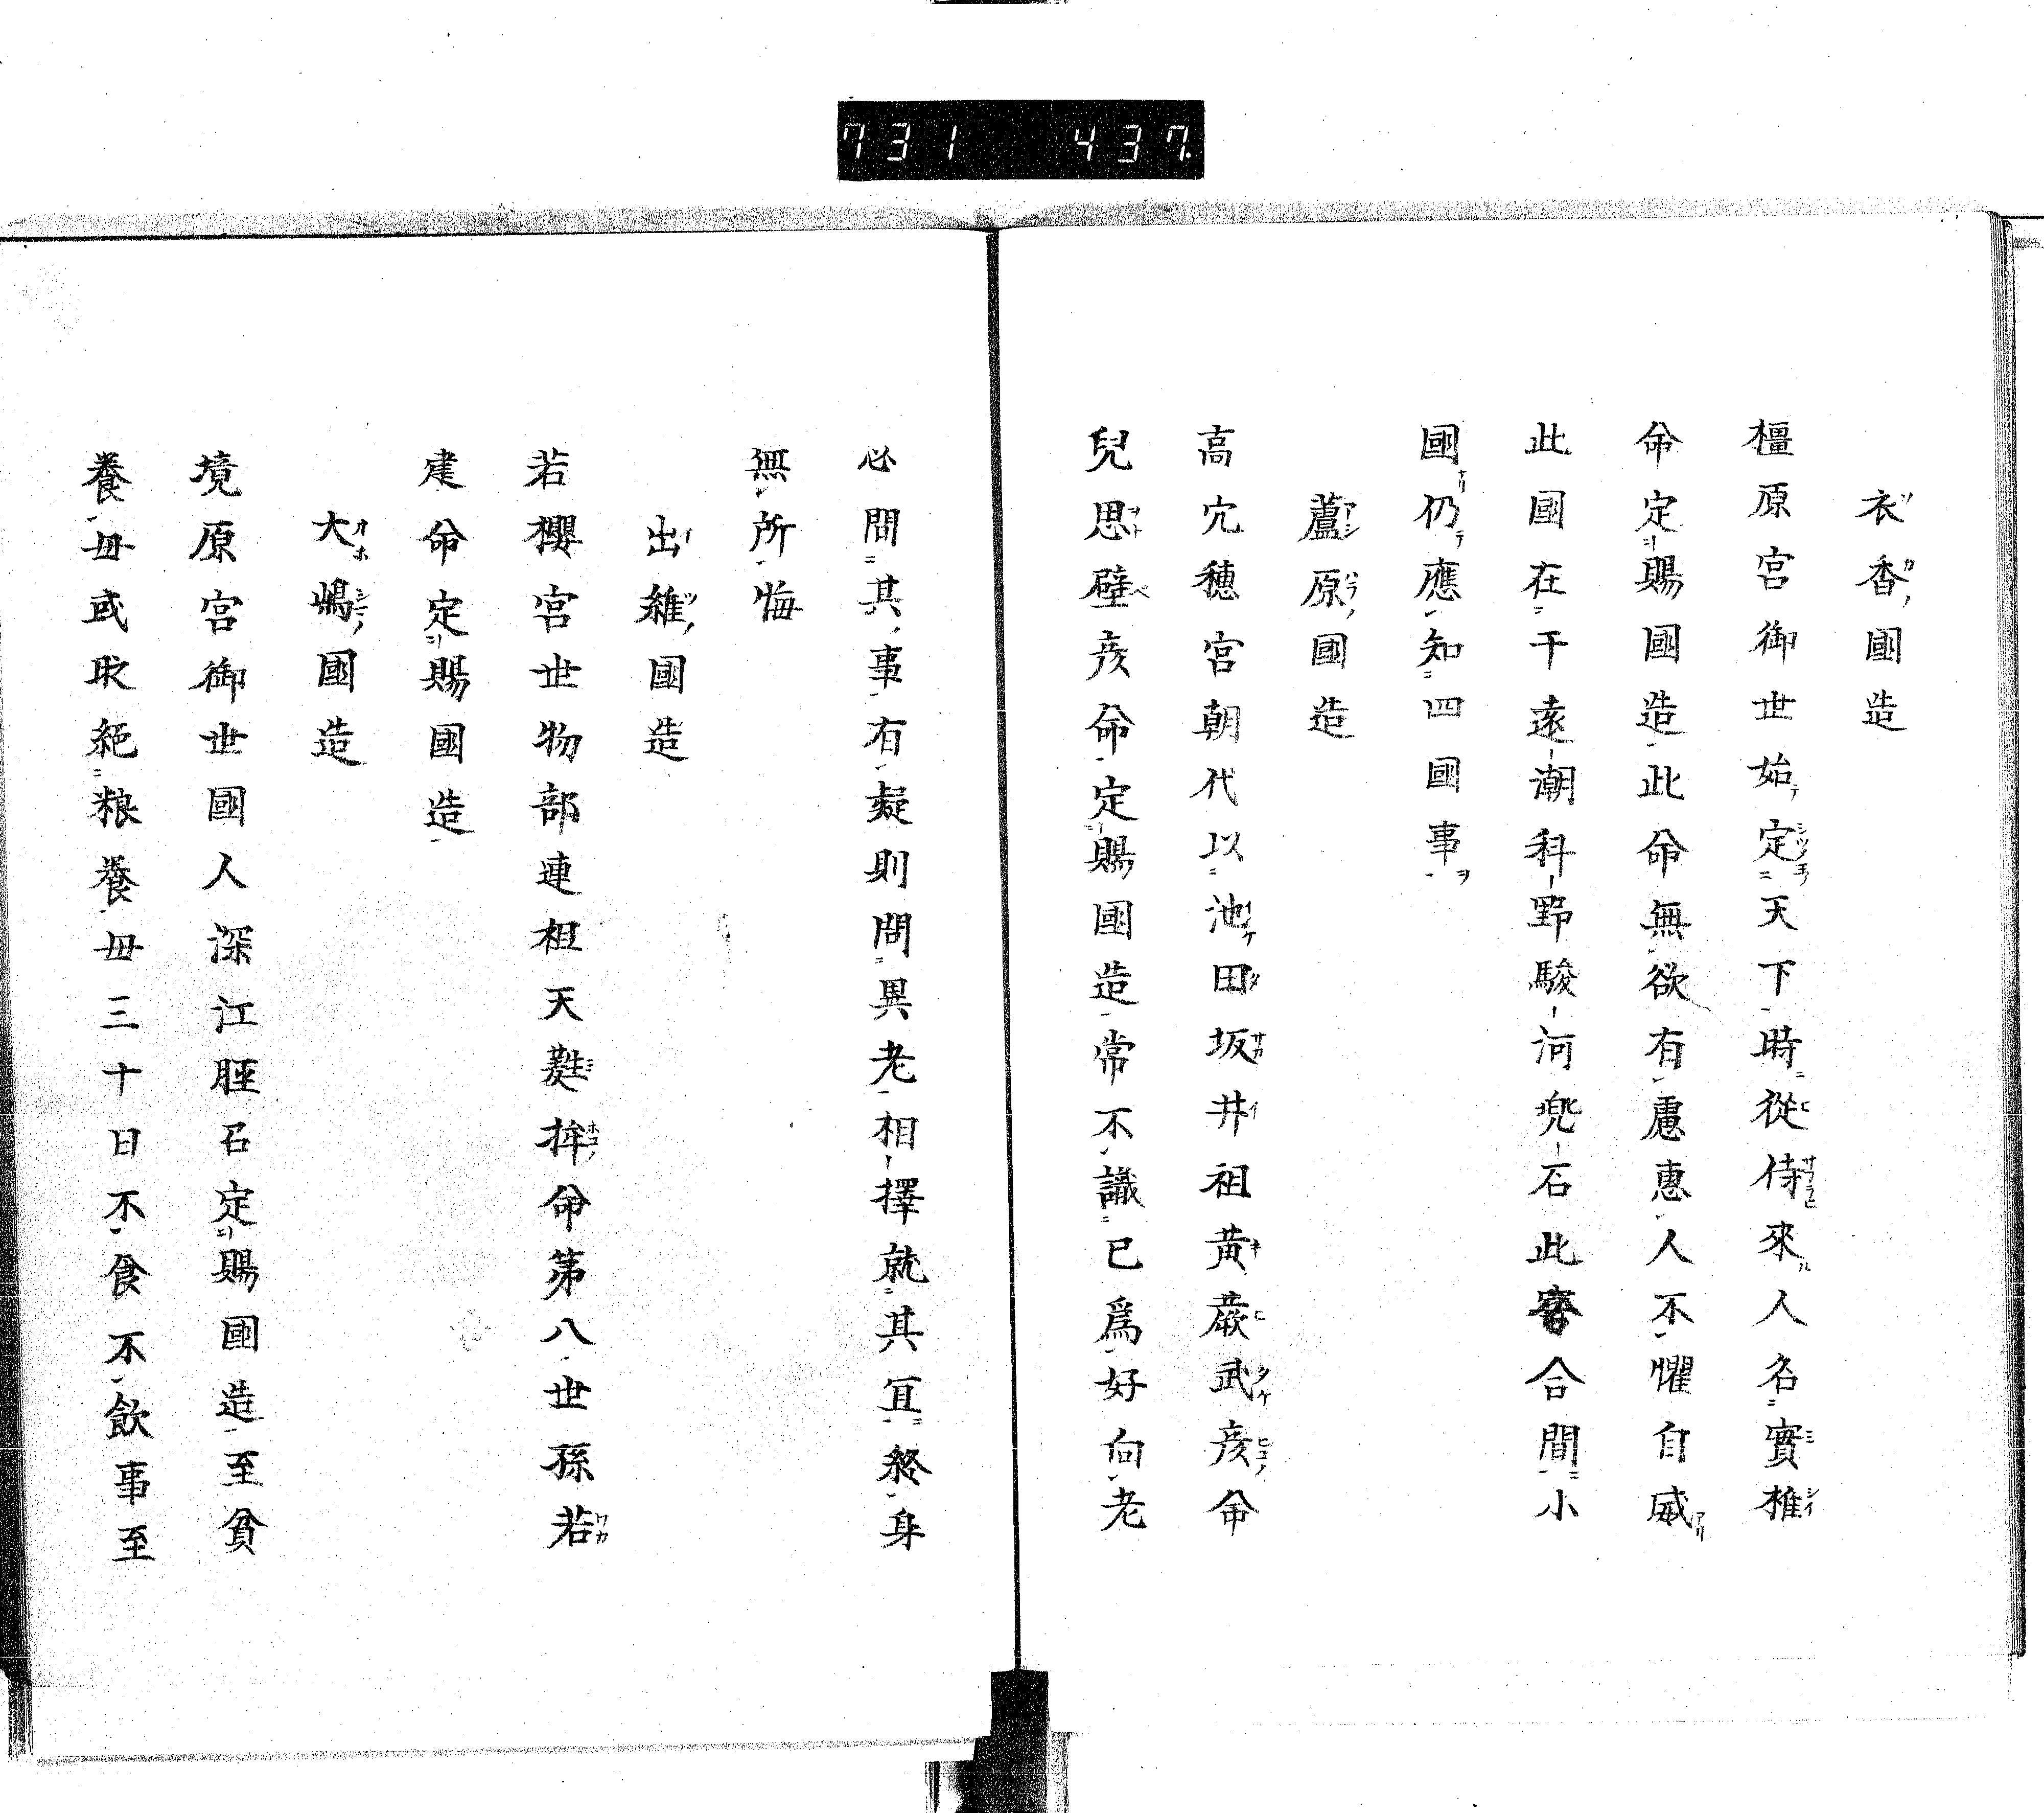 731 437.
衣香國造
橿原宮御世始定天下時從侍來人名實椎
命定賜國造此命無欲有慮惠人不懼自威
此國在于遠潮科野駿河兜石此審合間小
國仍應知四國事
蘆原國造
高穴穗宮朝代以池田坂井祖黄蕨武彦命
兒思壁彦命定賜國造常不識已爲好向老
必問其事有疑則問異老相擇就其冝終身
無所悔
出雖國造
若櫻宮世物部連祖天蕤桙命第八世孫若
建命定賜國造
大嶋國造
境原宮御世國人深江脛召定賜國造至貧
養毋或取絶粮養毋三十日不食不飲事至